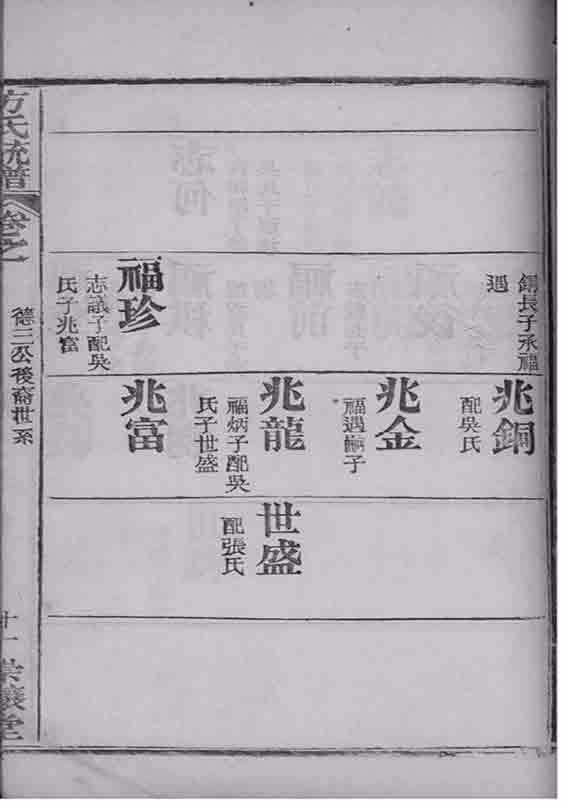 銅長子承福
遇
福珍
志議子配吳
氏子兆富
兆銅
配吳氏
兆金
福遇嗣子
兆龍
福炳子配吳
氏子世盛
兆富
世盛
配張氏
方氏統譜
卷之
德三公後裔世系
十一
堂